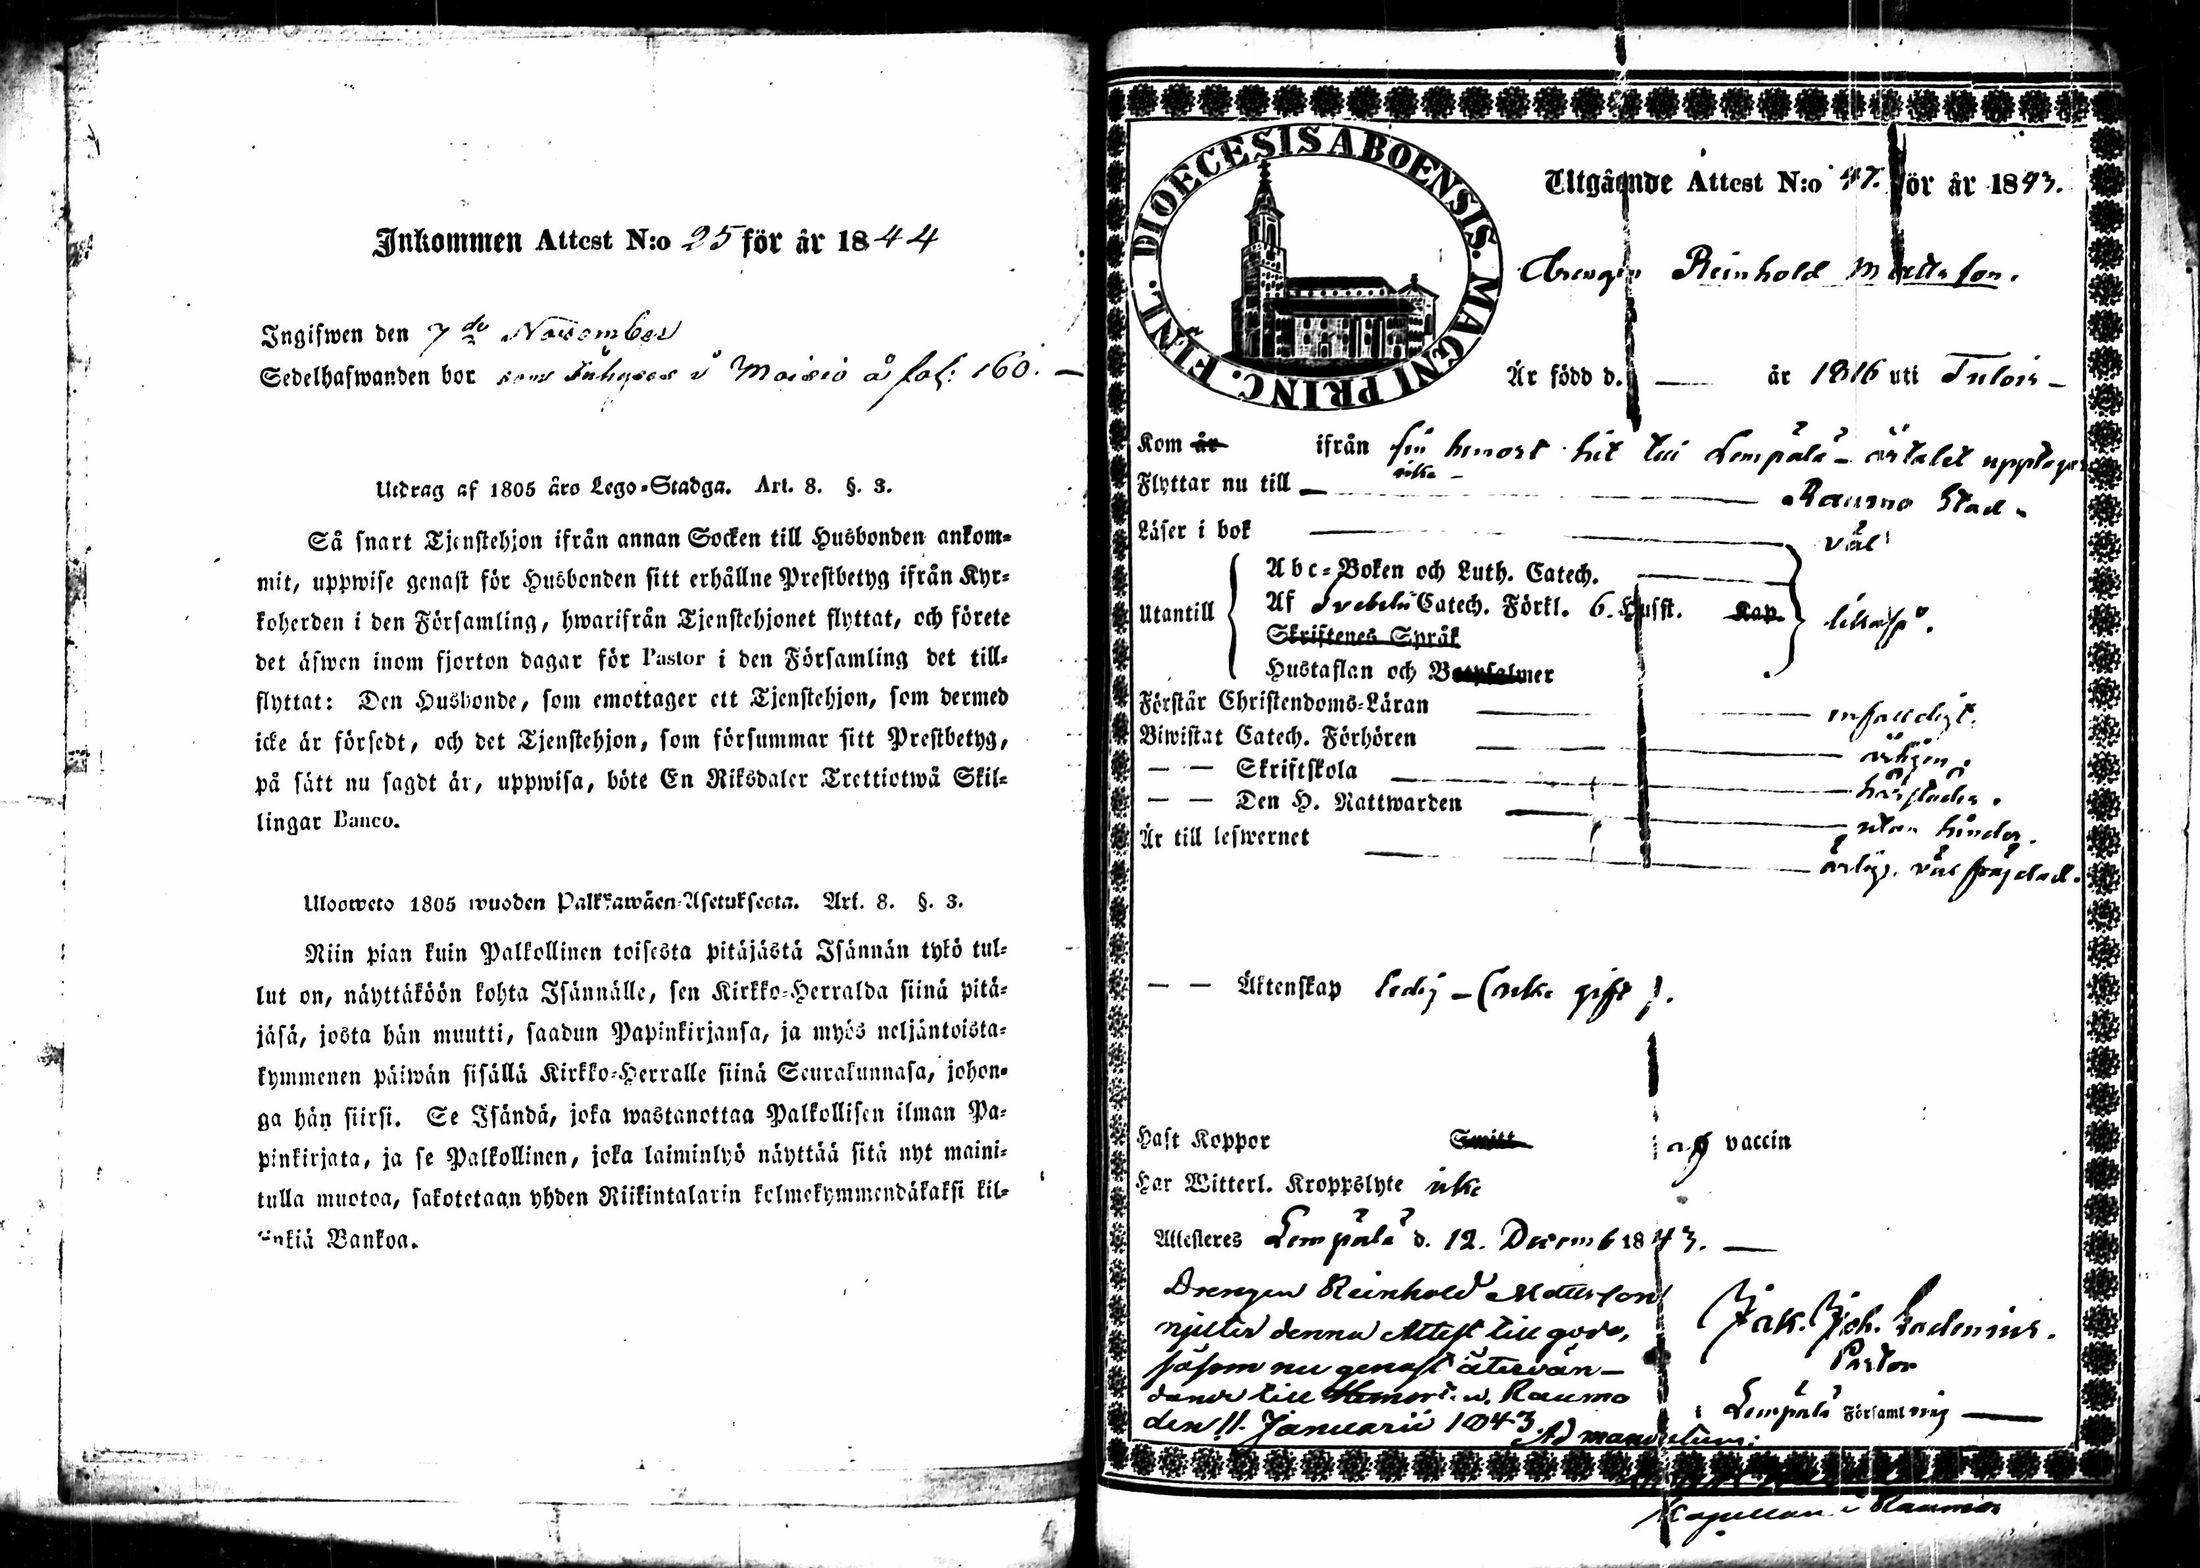 Inkommen Attest N:o 25 för år 1844
Ingifwen den 7de November
Sedelhafwanden bor som Inhyses i Moisio å fol: 160. —
Utdrag af 1805 års Lego-Stadga. Art. 8. §. 3.
Så snart Tjenstehjon ifrån annan Socken till Husbonden ankom-
mit, uppwise genast för Husbonden sitt erhållne Prestbetyg ifrån Kyr-
koherden i den Församling, hwarifrån Tjenstehjonet flyttat, och förete
det äfwen inom fjorton dagar för Pastor i den Församling det till-
flyttat: Den Husbonde, som emottager ett Tjenstehjon, som dermed
icke är försedt, och det Tjenstehjon, som försummar sitt Prestbetyg,
på sätt nu sagdt är, uppwisa, böte En Riksdaler Trettiotwå Skil-
lingar Banco.
Ulosweto 1805 wuoden Palkkawäen-Asetuksesta. Art. 8. §. 3.
Niin pian kuin Palkollinen toisesta pitäjästä Isännän tykö tul-
lut on, näyttäköön kohta Isännälle, sen Kirkko-Herralda siinä pitä-
jäsä, josta hän muutti, saadun Papinkirjansa, ja myös neljäntoista-
kymmenen päiwän sisällä Kirkko-Herralle siinä Seurakunnasa, johon-
ga hän siirsi. Se Isändä, joka wastanottaa Palkollisen ilman Pa-
pinkirjata, ja se Palkollinen, joka laiminlyö näyttää sitä nyt maini-
tulla muotoa, sakotetaan yhden Riikintalarin kolmekymmendäkaksi kil-
linkiä Bankoa.
DIOECESIS ABOENSIS. MAGNI PRINC. FINL.
Utgående Attest N:o 47. för år 1843.
Drengen Reinhold Mattsson.
Är född d. — år 1816 uti Tulois —
Kom år ifrån sin hemort hit till Lempälä — årtalet upptages
icke —
Flyttar nu till — Raumo Stad —
Läser i bok väl
Utantill
Abc-Boken och Luth. Catech.
Af Svebelii Catech. Förkl. 6. Husst. Kap.
Skriftenes Språk
Hustaflan och Botpsalmer
likaså.
Förstår Christendoms-Läran enfaldigt.
Biwistat Catech. Förhören årligen.
— — Skriftskola härstädes.
— — Den H. Nattwarden utan hinder.
Är till lefwernet ärlig, väl frägdad.
— — Äktenskap ledig — (icke gift).
Haft Koppor Smitt af vaccin
Har Witterl. Kroppslyte icke
Attesteres Lempälä d. 12. Decemb 1843. —
Drengen Reinhold Mattsson
njuter denna Attest till godo,
såsom nu genast återvän-
dande till Hemort. u. Raumo
den 11. Januarii 1843. Ad mandatum:
Jak. Joh. Gadenius.
Pastor
i Lempälä Församling —
Kapellan i Raumo